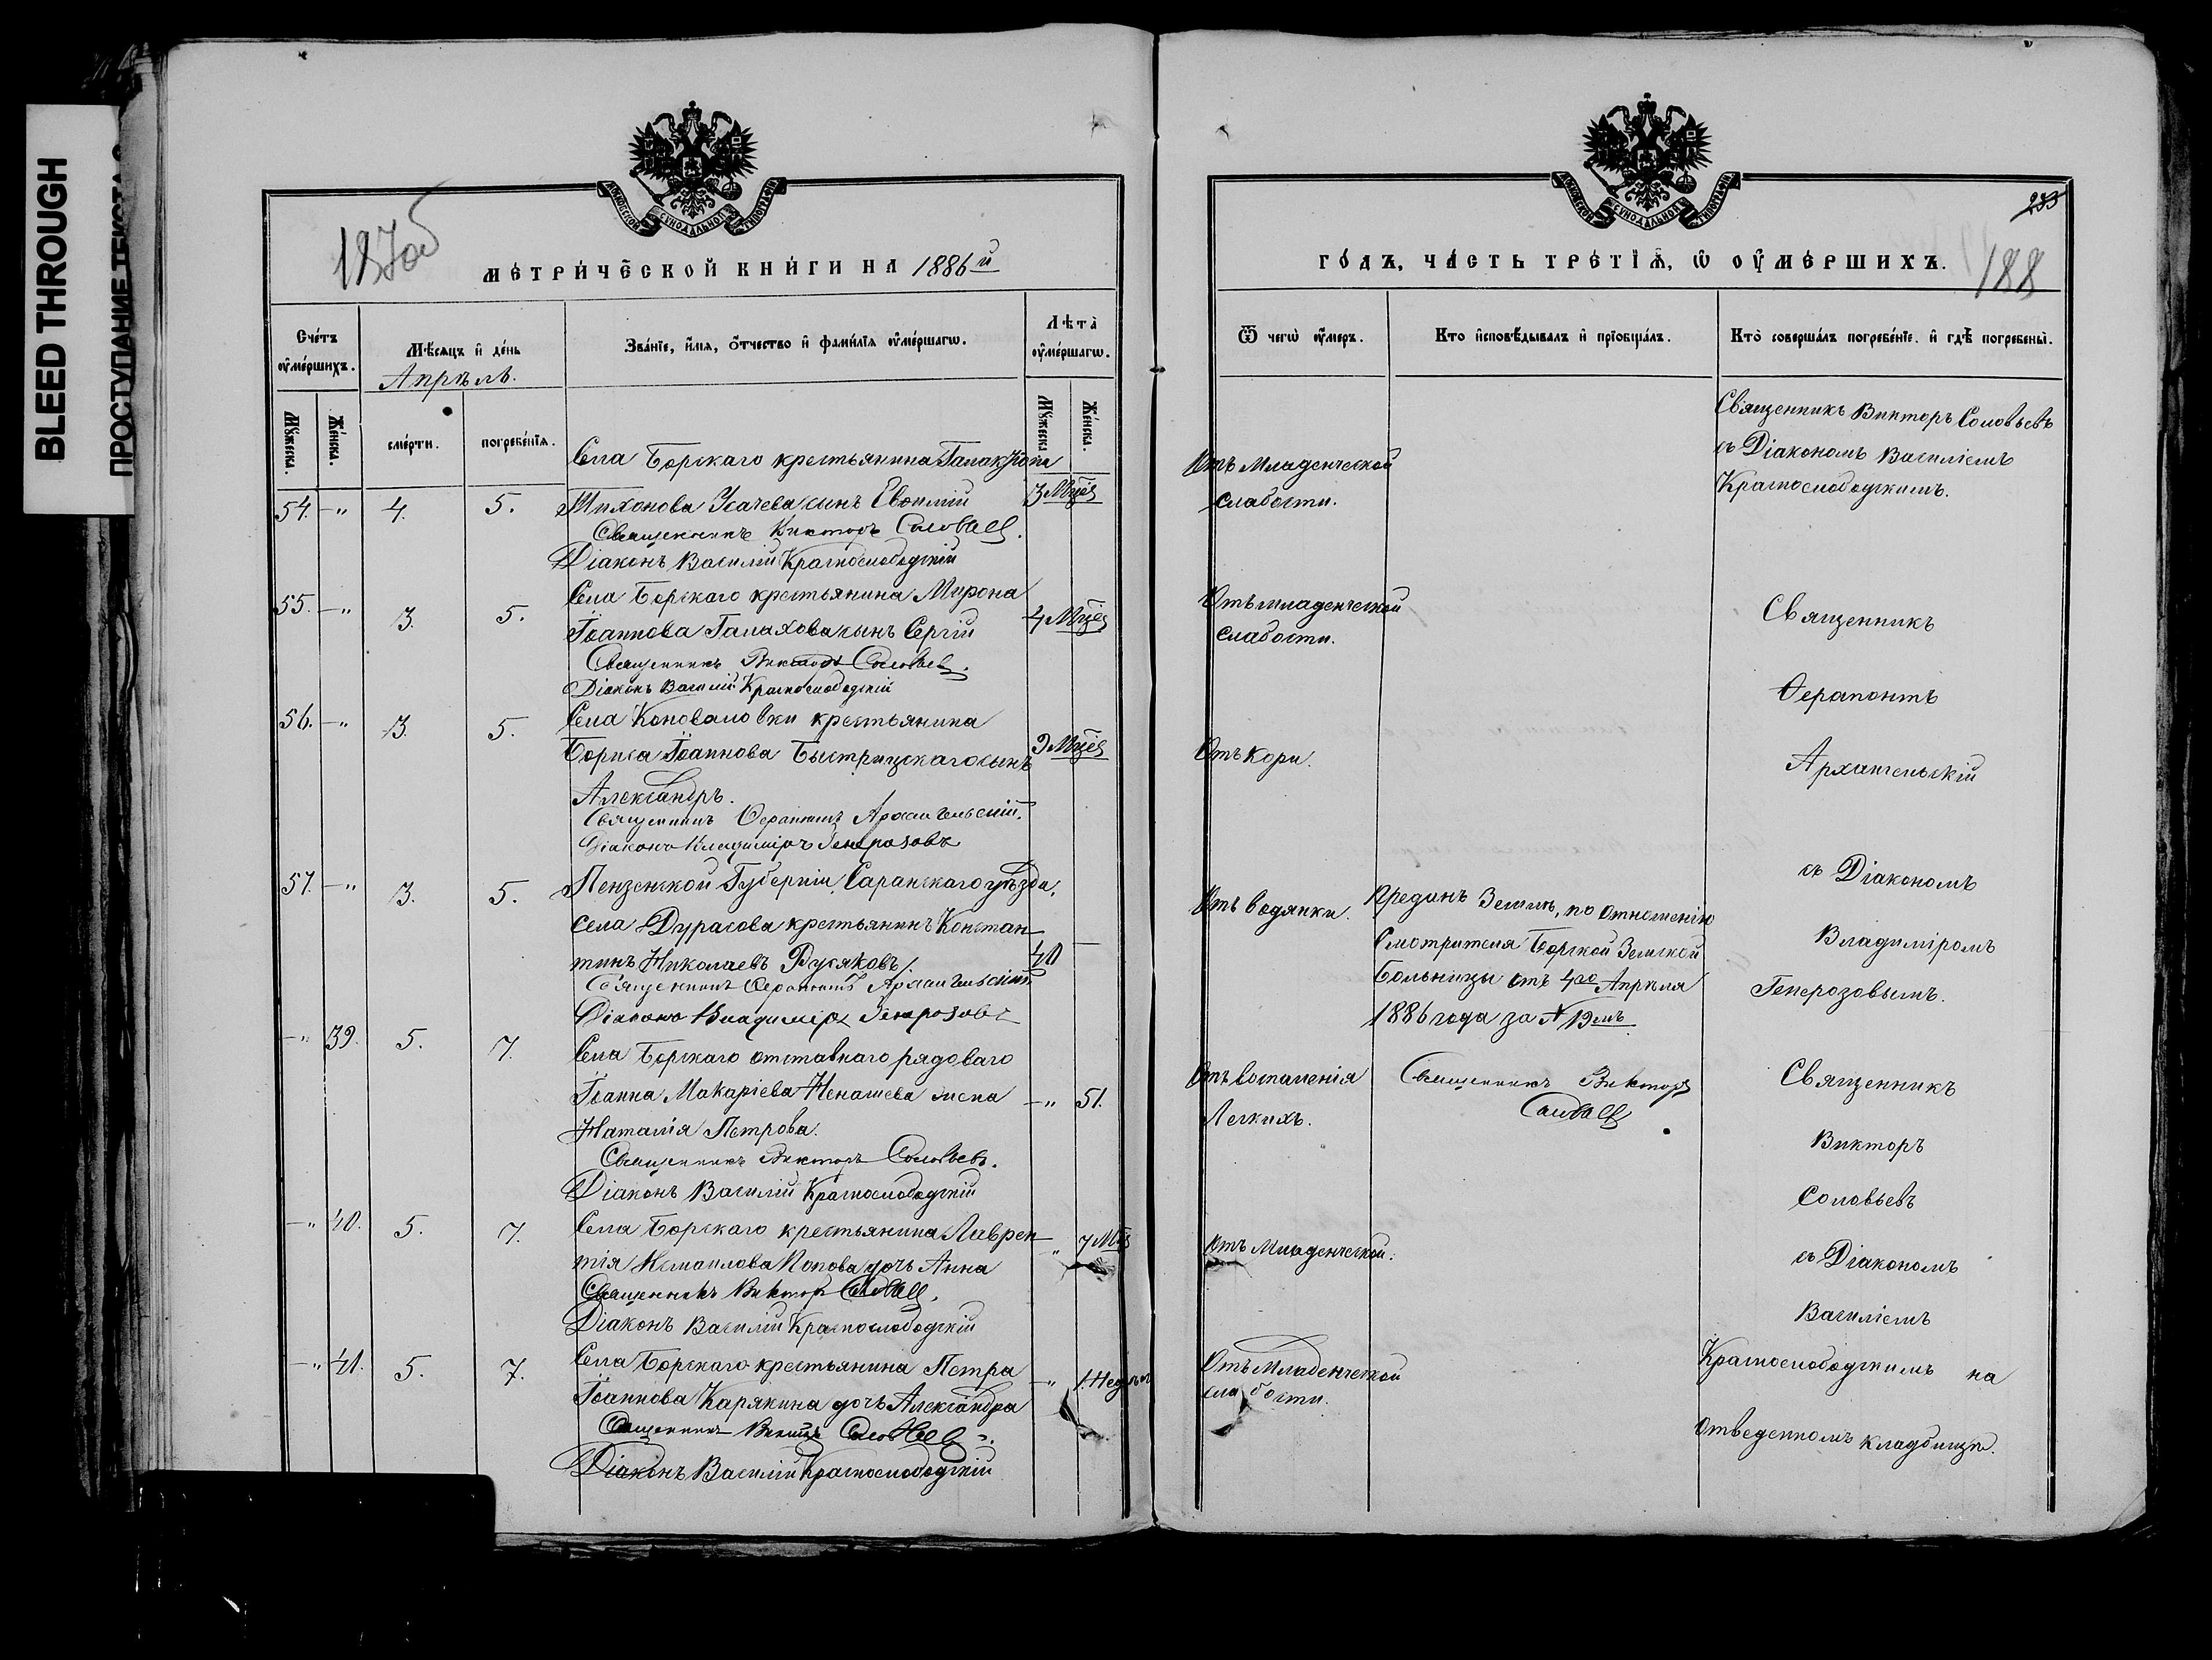 BLEED THROUGH
ПРОСТУПАНИЕ ТЕКСТА
МОСКОВСКОЙ СѴНОДАЛЬНОЙ ТИПОГРАФІИ
187об
МЕТРИЧЕСКОЙ КНИГИ НА 1886й
Счетъ оумершихъ.
Мѣсяцъ и день
Апрѣль.
Званіе, имя, отчество и фамилія оумершагѡ.
Лѣта оумершагѡ.
Мужеска.
Женска.
смерти.
погребенія.
Мужеска
Женска.
Села Борскаго крестьянина Галактіона
54. —„ 4. 5. Тихонова Усачева сынъ Евѳимій 3 Мцев
Священникъ Викторъ Соловьев.
Діаконъ Василій Краснослободскій
55. —„ 3. 5. Села Борскаго крестьянина Мирона
Іоаннова Галахова сынъ Сергій 4 Мцев
Священникъ Викторъ Соловьев.
Діаконъ Василій Краснослободскій
56. —„ 3. 5. Села Коноваловки крестьянина
Бориса Іоаннова Быстрицскаго сынъ 9 Мцев
Александръ.
Священникъ Ѳерапонтъ Архангельскій.
Діаконъ Владиміръ Генерозовъ
57. —„ 3. 5. Пензенской Губерніи, Саранскаго уѣзда,
села Дурасова крестьянинъ Констан-
тинъ Николаевъ 40 —
Священникъ Ѳерапонтъ Архангельскій
Діаконъ Владиміръ Генерозовъ
—„ 39. 5. 7. Села Борскаго отставнаго рядоваго
Іоанна Макаріева Ненашева жена —„ 51.
Наталія Петрова.
Священникъ Викторъ Соловьевъ.
Діаконъ Василій Краснослободскій
—„ 40. 5. 7. Села Борскаго крестьянина Лаврен-
тія Измаилова Попова дочь Анна „ 7 Мцв
Священникъ Викторъ Соловьев.
Діаконъ Василій Краснослободскій
—„ 41. 5. 7. Села Борскаго крестьянина Петра
Іоаннова Карякина дочь Александра —„ 1. Недѣли
Священникъ Викторъ Соловьев.
Діаконъ Василій Краснослободскій
МОСКОВСКОЙ СѴНОДАЛЬНОЙ ТИПОГРАФІИ
283
188
ГОДЪ, ЧАСТЬ ТРЕТІЯ, Ѡ ОУМЕРШИХЪ.
Ѿ чегѡ оумеръ.
Кто исповѣдывалъ и пріобщалъ.
Кто совершалъ погребеніе. и гдѣ погребены.
Священникъ Викторъ Соловьевъ
съ Діакономъ Василіемъ
Краснослободскимъ.
Отъ Младенческой
слабости.
Отъ младенческой
слабости.
Священникъ
Ѳерапонтъ
Отъ кори.
Архангельскій
съ Діакономъ
Отъ водянки.
Преданъ Землѣ, по отношенію
Смотрителя Борской Земской
Больницы отъ 4го Апрѣля
1886 года за № 19мъ
Владиміромъ
Генерозовымъ.
Отъ воспаленія
Легкихъ.
Священникъ Викторъ
Соловьев
Священникъ
Викторъ
Соловьевъ
Отъ Младенческой.
съ Діакономъ
Василіемъ
Отъ Младенческой
слабости.
Краснослободскимъ на
отведенномъ кладбищѣ.